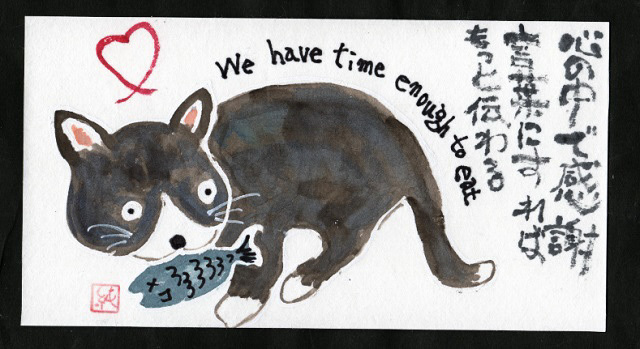 We have time enough to eat
心の中で感謝
言葉にすれば
もっと伝わる